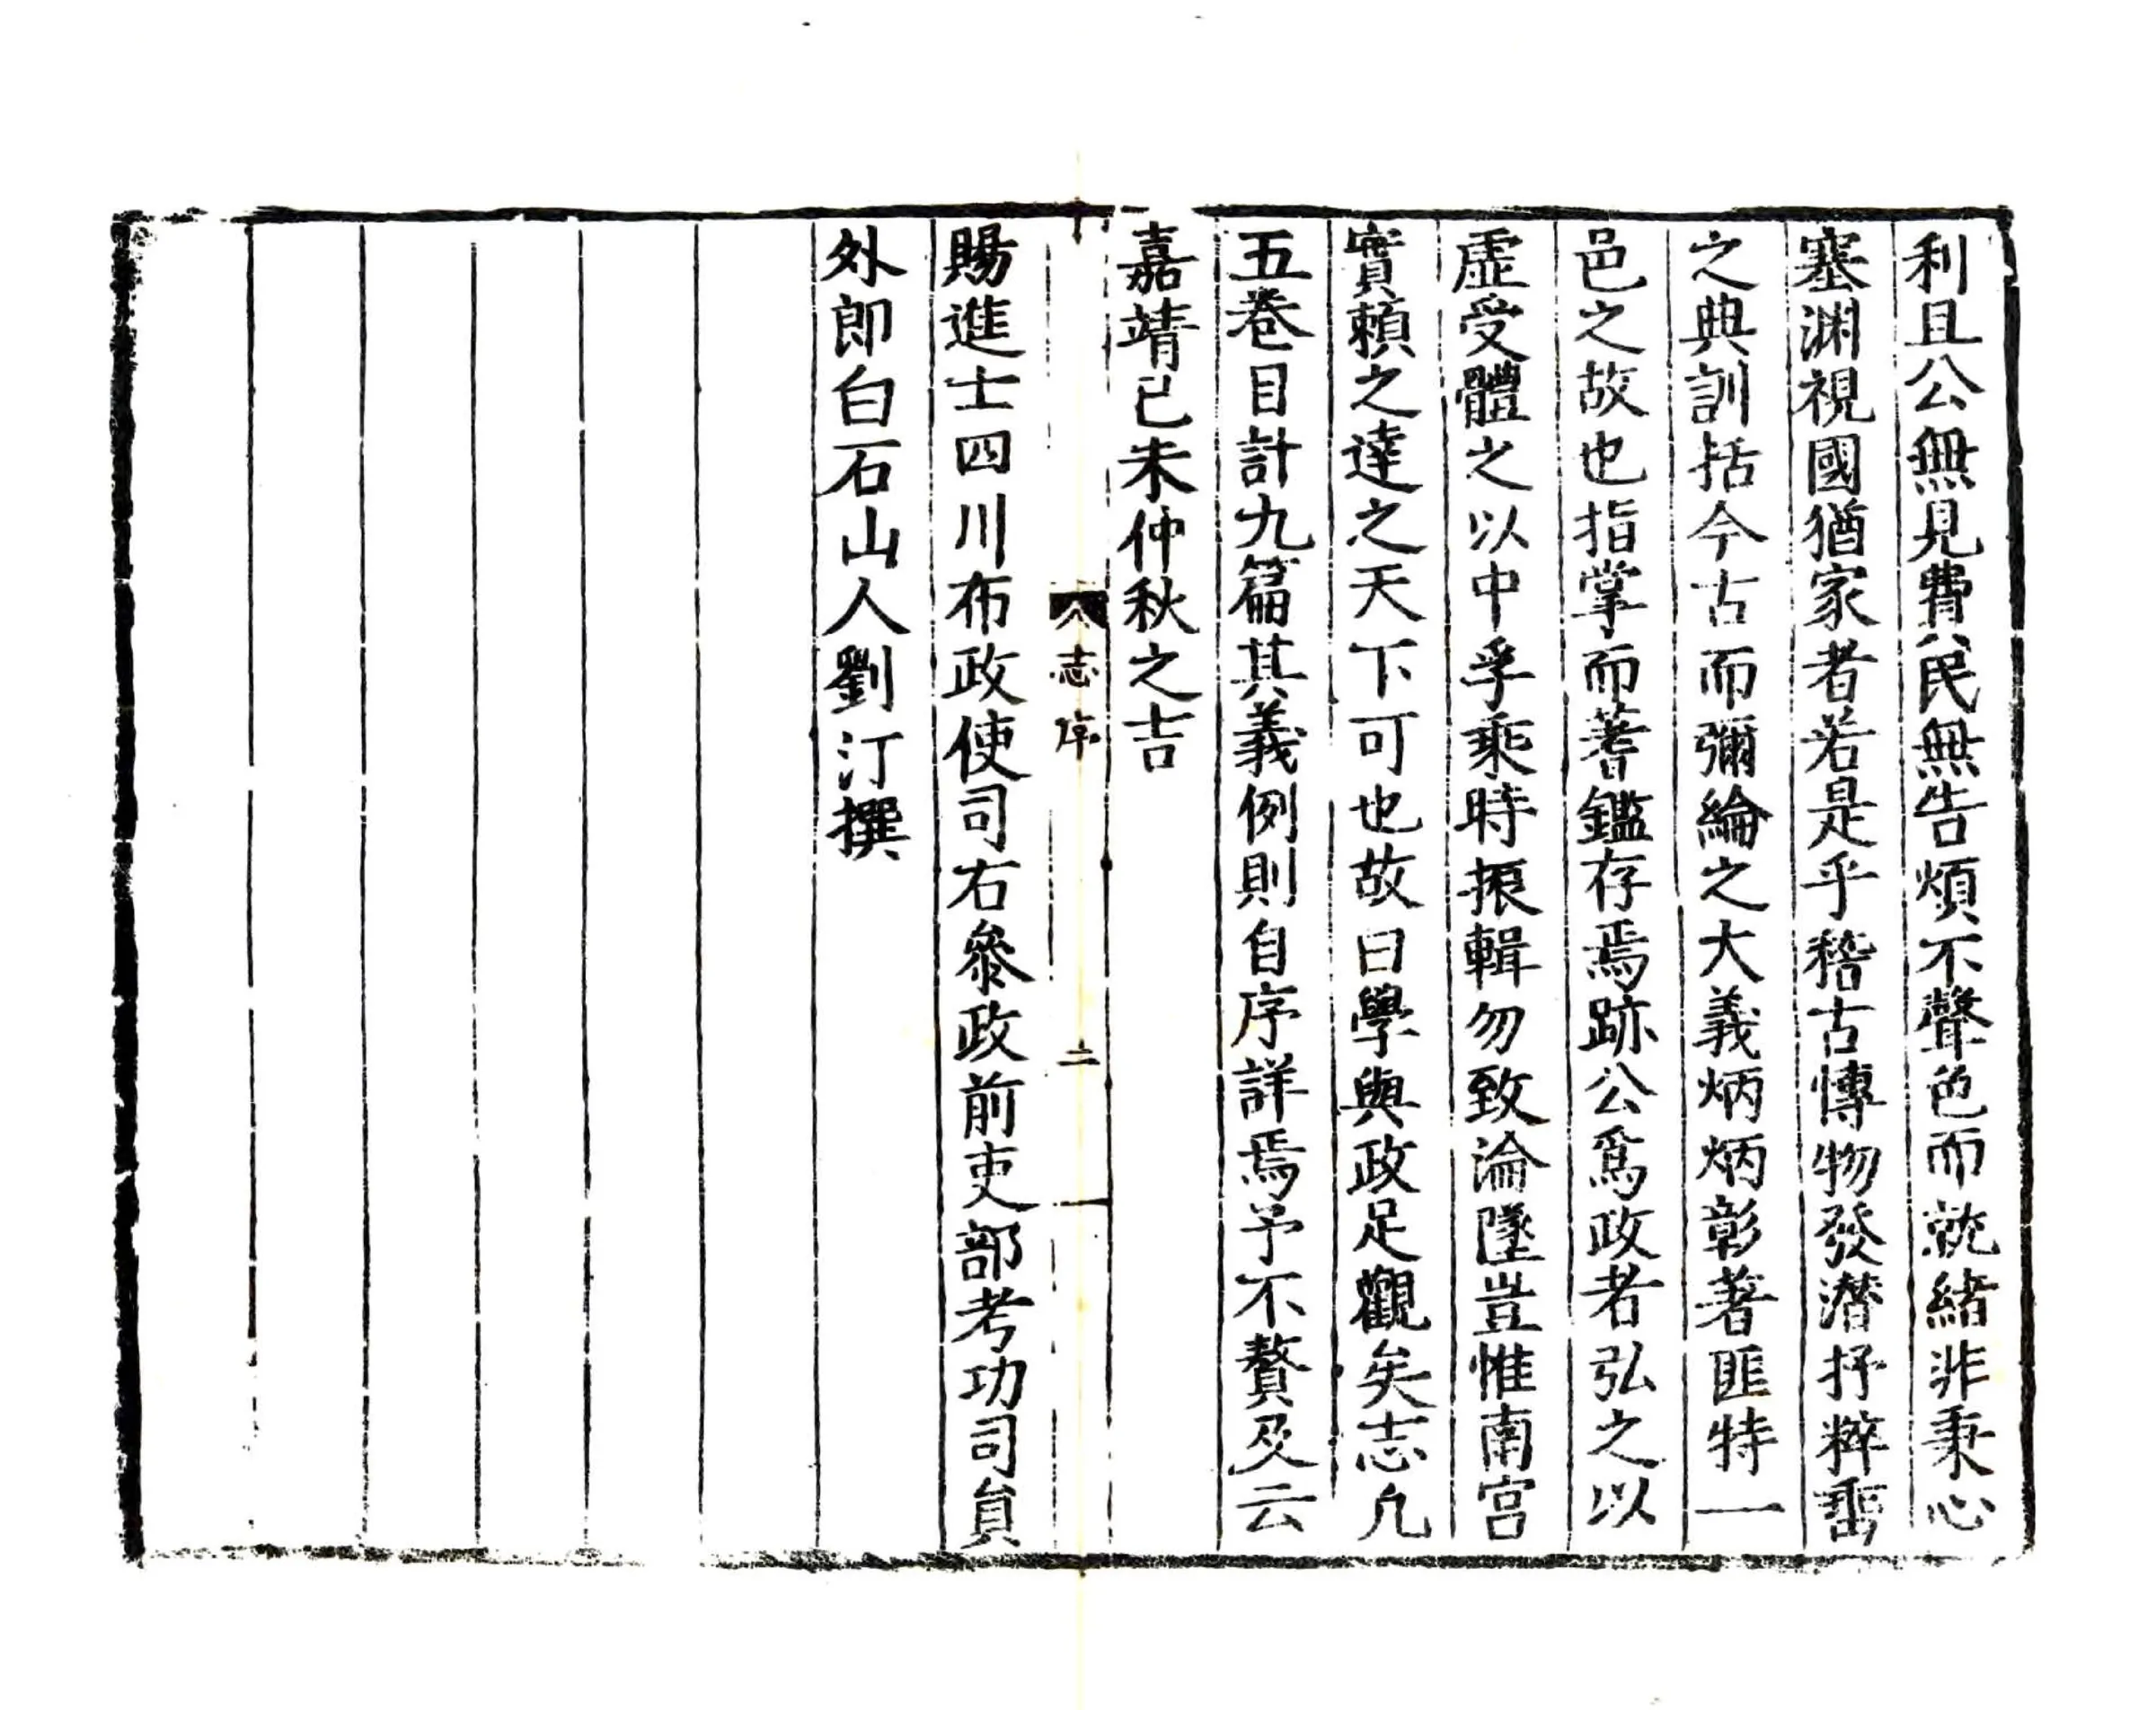 利且公無見費民無告煩不聲色而就緒非秉心
塞淵視國猶家者若是乎稽古博物發潛抒粹垂
之典訓括今古而彌綸之大義炳炳彰著匪特一
邑之故也指掌而蓍鑑存焉跡公爲政者弘之以
虛受體之以中孚乘時振輯勿致淪墜豈惟南宫
實賴之達之天下可也故曰學與政足觀矣志凡
五卷目計九篇其義例則自序詳焉予不贅及云
嘉靖已未仲秋之吉
志序 二
賜進士四川布政使司右叅政前吏部考功司貟
外郎白石山人劉汀撰